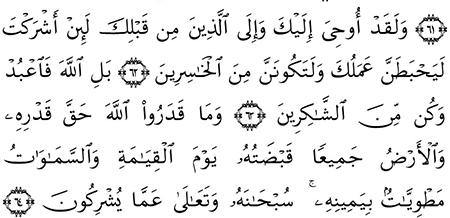 ﴿٦١﴾ وَلَقَدْ أُوحِيَ إِلَيْكَ وَإِلَى ٱلَّذِينَ مِن قَبْلِكَ لَئِنْ أَشْرَكْتَ
لَيَحْبَطَنَّ عَمَلُكَ وَلَتَكُونَنَّ مِنَ ٱلْخَٰسِرِينَ ﴿٦٢﴾ بَلِ ٱللَّهَ فَٱعْبُدْ
وَكُن مِّنَ ٱلشَّٰكِرِينَ ﴿٦٣﴾ وَمَا قَدَرُوا۟ ٱللَّهَ حَقَّ قَدْرِهِۦ
وَٱلْأَرْضُ جَمِيعًا قَبْضَتُهُۥ يَوْمَ ٱلْقِيَٰمَةِ وَٱلسَّمَٰوَٰتُ
مَطْوِيَّٰتٌۢ بِيَمِينِهِۦ ۚ سُبْحَٰنَهُۥ وَتَعَٰلَىٰ عَمَّا يُشْرِكُونَ ﴿٦٤﴾